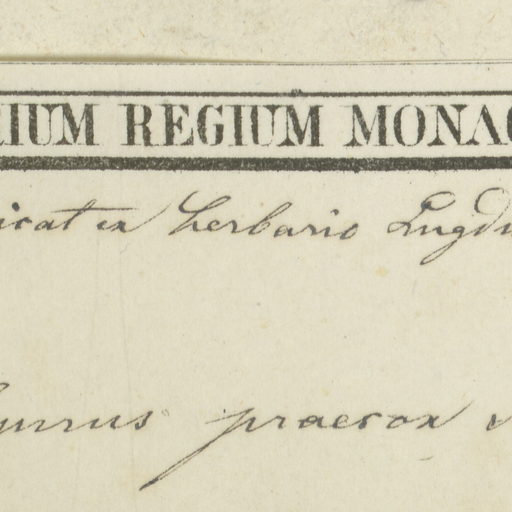 RIUM REGIUM MONAC
icat ex herbario Lugdu
praecox